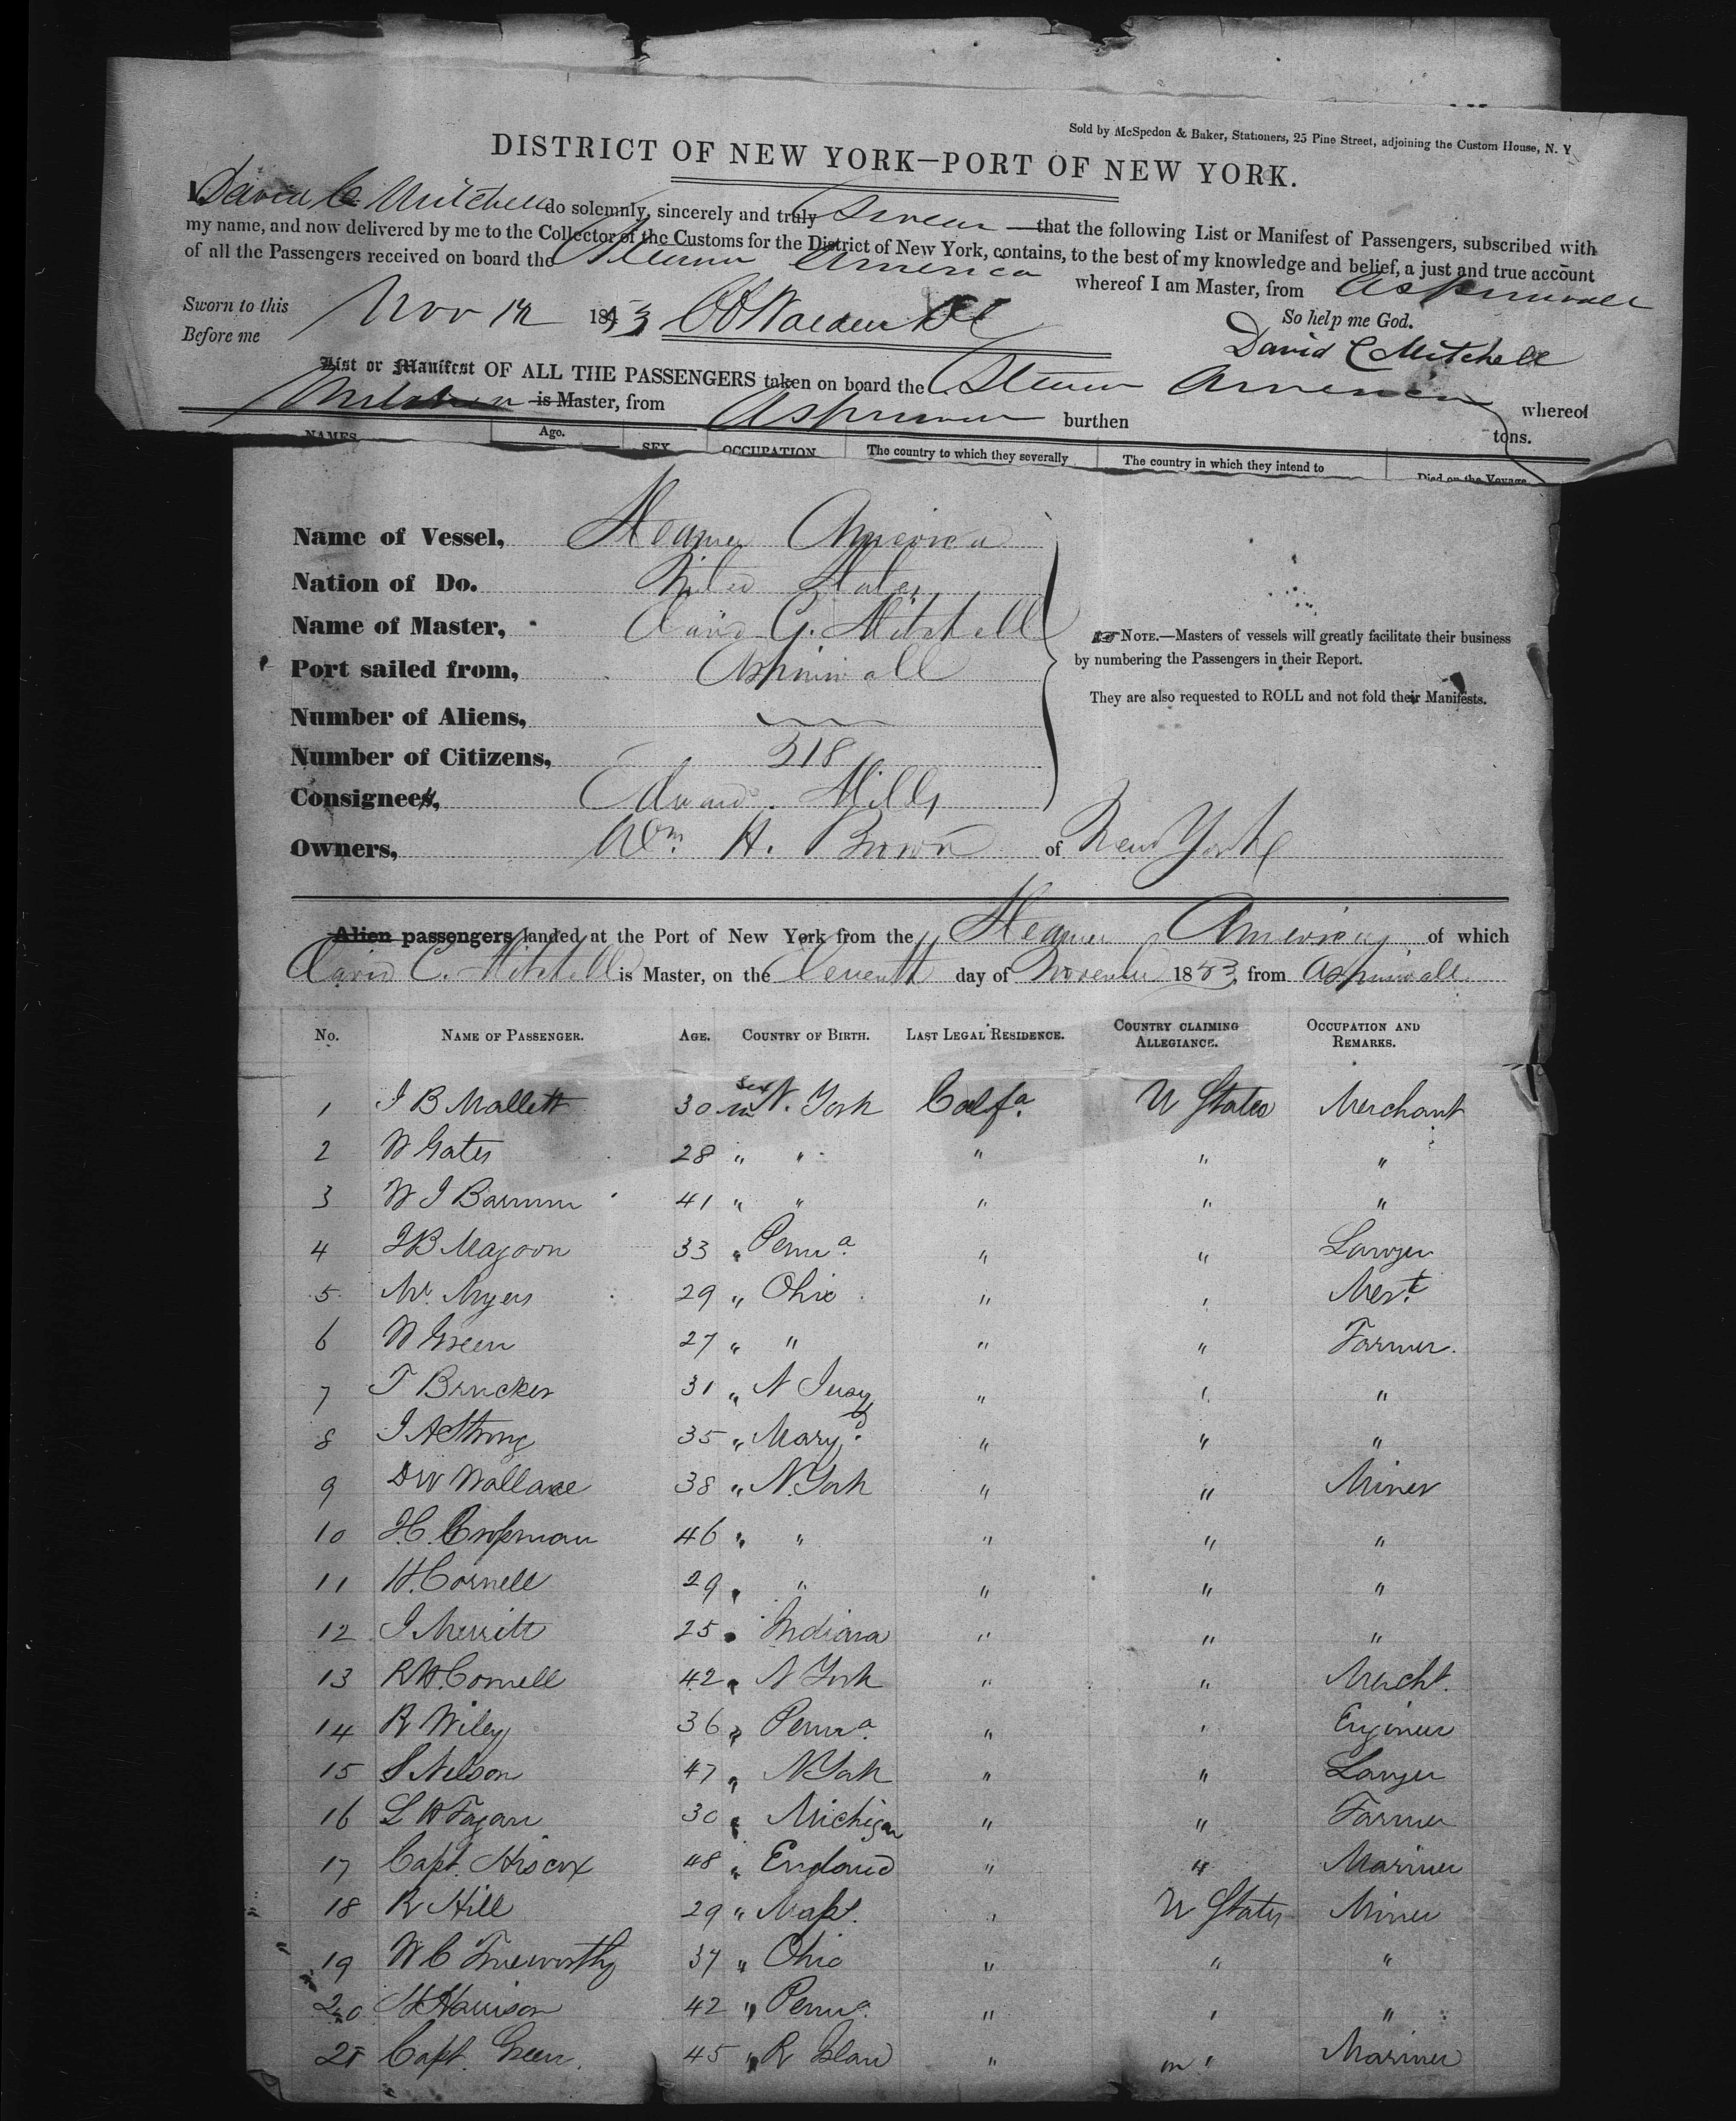 Sold by McSpedon & Baker, Stationers, 25 Pine Street, adjoining the Custom House, N. Y
DISTRICT OF NEW YORK—PORT OF NEW YORK.
I David C Mitchell do solemnly, sincerely and truly Swear that the following List or Manifest of Passengers, subscribed with
my name, and now delivered by me to the Collector of the Customs for the District of New York, contains, to the best of my knowledge and belief, a just and true account
of all the Passengers received on board the Steamer America whereof I am Master, from Aspinwall
Sworn to this Nov 12 1853 So help me God.
Before me David C Mitchell
List or Manifest OF ALL THE PASSENGERS taken on board the Steamer America whereof
Mitchell is Master, from Aspinwall burthen tons.
NAMES Age. SEX OCCUPATION The country to which they severally The country in which they intend to Died on the Voyage
Name of Vessel, Steamer America
Nation of Do. United States
Name of Master, David C. Mitchell
Port sailed from, Aspinwall
Number of Aliens,
Number of Citizens, 318
Consignees, Edward Mills
Owners, Wm. H. Brown of New York
NOTE.—Masters of vessels will greatly facilitate their business
by numbering the Passengers in their Report.
They are also requested to ROLL and not fold their Manifests.
Alien passengers landed at the Port of New York from the Steamer America of which
David C. Mitchell is Master, on the Eleventh day of November 1853, from Aspinwall
No. NAME OF PASSENGER. AGE. COUNTRY OF BIRTH. LAST LEGAL RESIDENCE. COUNTRY CLAIMING ALLEGIANCE. OCCUPATION AND REMARKS.
Sex
1 J B Mallett 30 m N. York Calfa. U States Merchant
2 W Gates 28 " " " " "
3 W J Barnum 41 " " " " "
4 J B Magoon 33 " Penna. " " Lawyer
5 Mr. Myers 29 " Ohio " " Mert.
6 W Green 27 " " " " Farmer.
7 T Brucker 31 " N Jersy " " "
8 J A Strong 35 " Maryd. " " "
9 DW Wallace 38 " N. York " " Miner
10 H. 46 " " " " "
11 H. Cornell 29 " " " " "
12 J Merritt 25 " Indiana " " "
13 R H. Cornell 42 " N York " " Mercht.
14 R Wiley 36 " Penna. " " Engineer
15 S Nelson 47 " N York " " Lawyer
16 L W Fagan 30 " Michigan " " Farmer
17 Capt. Hiscox 48 " England " " Mariner
18 R Hill 29 " Mass. " U States Miner
19 W C Trueworthy 37 " Ohio " " "
20 H Harrison 42 " Penna. " " "
21 Capt. Green. 45 " R Island " " Mariner